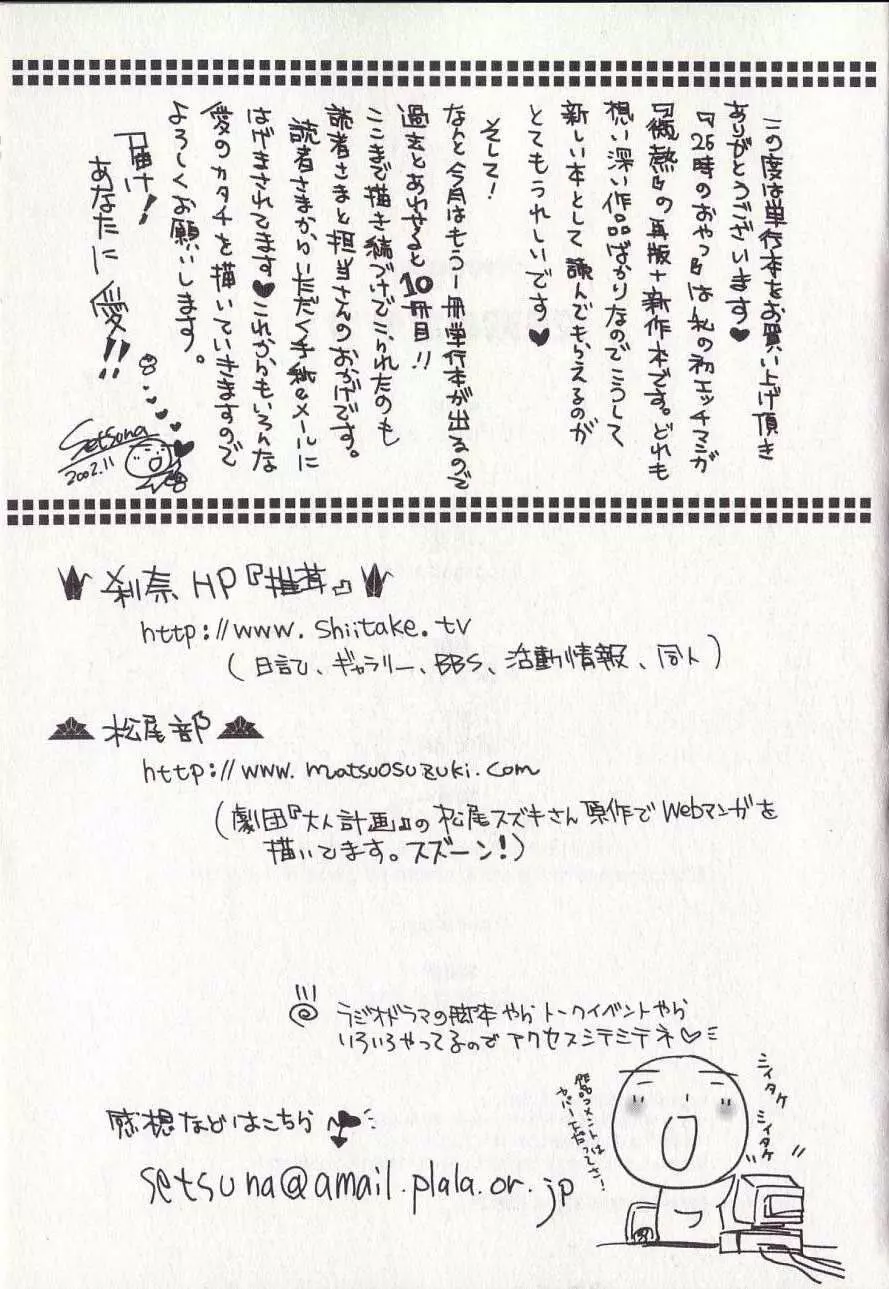 この度は単行本をお買い上げ頂き
ありがとうございます♥
『26時のおやつ』は私の初エッチマンガ
『微熱』の再版+新作本です。どれも
想い深い作品ばかりなのでこうして
新しい本として読んでもらえるのが
とてもうれしいです♥
そして!
なんと今月はもう一冊単行本が出るので
過去とあわせると10冊目!!
ここまで描き続けてこられたのも
読者さまと担当さんのおかげです。
読者さまからいただく手紙eメールに
はげまされてます♥これからもいろんな
愛のカタチを描いていきますので
よろしくお願いします。
届け!
あなたに愛!!
Setsuna
2002.11
刹奈HP『椎茸』
http://www.shiitake.tv
(日記、ギャラリー、BBS、活動情報、同人)
松尾部
http://www.matsuosuzuki.com
(劇団『大人計画』の松尾スズキさん原作でWebマンガを
描いてます。スズーン!)
ラジオドラマの脚本やらトークイベントやら
いろいろやってるのでアクセスシテミテネ♡
シイタケ
シイタケ
作品コメントは
カバー下見て下さい!
感想などはこちら
setsuna@amail.plala.or.jp